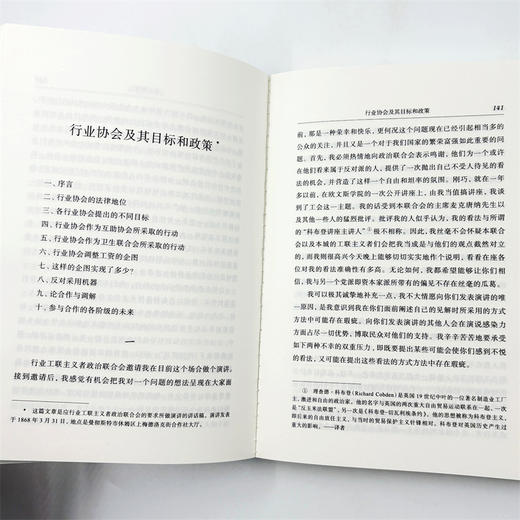 行业协会及其目标和政策*
一、序言
二、行业协会的法律地位
三、各行业协会提出的不同目标
四、行业协会作为互助协会所采取的行动
五、行业协会作为卫生联合会所采取的行动
六、行业协会调整工资的企图
七、这样的企图实现了多少?
八、反对采用机器
九、论合作与调解
十、参与合作的各阶级的未来
一
行业工联主义者政治联合会邀请我在目前这个场合做个演讲。
接到邀请后,我感觉有机会把我对一个问题的想法呈现在大家面
* 这篇文章是应行业工联主义者政治联合会的要求所做演讲的讲话稿。演讲发表
于1868年3月31日,地点是曼彻斯特市休姆区上梅德洛克街合作社大厅。
行业协会及其目标和政策 141
前,那是一种荣幸和快乐,更何况这个问题现在已经引起相当多的
公众的关注,并且又是一个对于我们国家的繁荣富强如此重要的问
题。首先,我必须热情地向政治联合会表示鸣谢,他们为一个或许
在他们看来属于反对派的人,提供了一次抛出自己不受人待见的看
法的机会,并营造了这样一个自由和坦率的氛围。刚巧,就在一年
多以前,在欧文斯学院的一次公开讲座上,由我当值搞讲座,我谈
到了工会这一主题。我的话受到本联合会的主席麦克唐纳先生以
及其他一些人的猛烈批评。批评我的人似乎认为,我的看法与所谓
的“科布登讲座主讲人”①极不相称。我丝毫不会怀疑本联合会
以及本城的工联主义者们会把我当成是与他们的观点截然对立的
人,而我则很高兴今天晚上能够切切实实地作个说明,看看在座各
位对我的看法准确性有多高。无论如何,我都希望能够让你们相
信,我与另一个党派即资本家派所带有的偏见不存在丝毫的瓜葛。
我可以极其诚挚地补充一点,我不大情愿向你们发表演讲的唯
一原因,是我意识到我在你们面前阐述自己的见解时所采用的方式
方法中可能存在瑕疵。向你们发表演讲的其他人会在演说感染力
方面占尽一切优势,博取民众对他们的支持。我辛辛苦苦地要承受
如下两种不幸的双重压力,即既要提出某些可能会使你们感到不悦
的看法,又可能在提出这些看法的方式方法中存在瑕疵。
① 理查德·科布登(Richard Cobden)是英国19世纪中叶的一位著名制造业工厂
主、激进和自由的政治家。他的名字与英国的两次重大自由贸易运动联系在一起,一次
是“反玉米法联盟”,另一次是《科布登-切瓦利埃条约》。